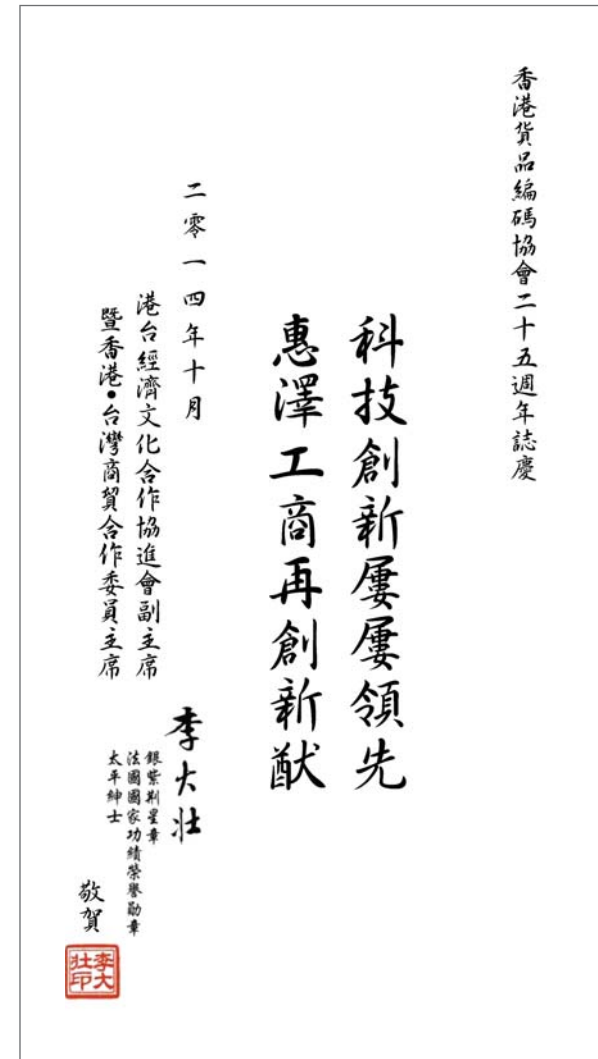 香港貨品編碼協會二十五週年誌慶
科技創新屢屢領先
惠澤工商再創新猷
二零一四年十月
港台經濟文化合作協進會副主席
暨香港•台灣商貿合作委員主席
李大壯
銀紫荆星章
法國國家功績榮譽勛章
太平紳士
敬賀
李大
壯印